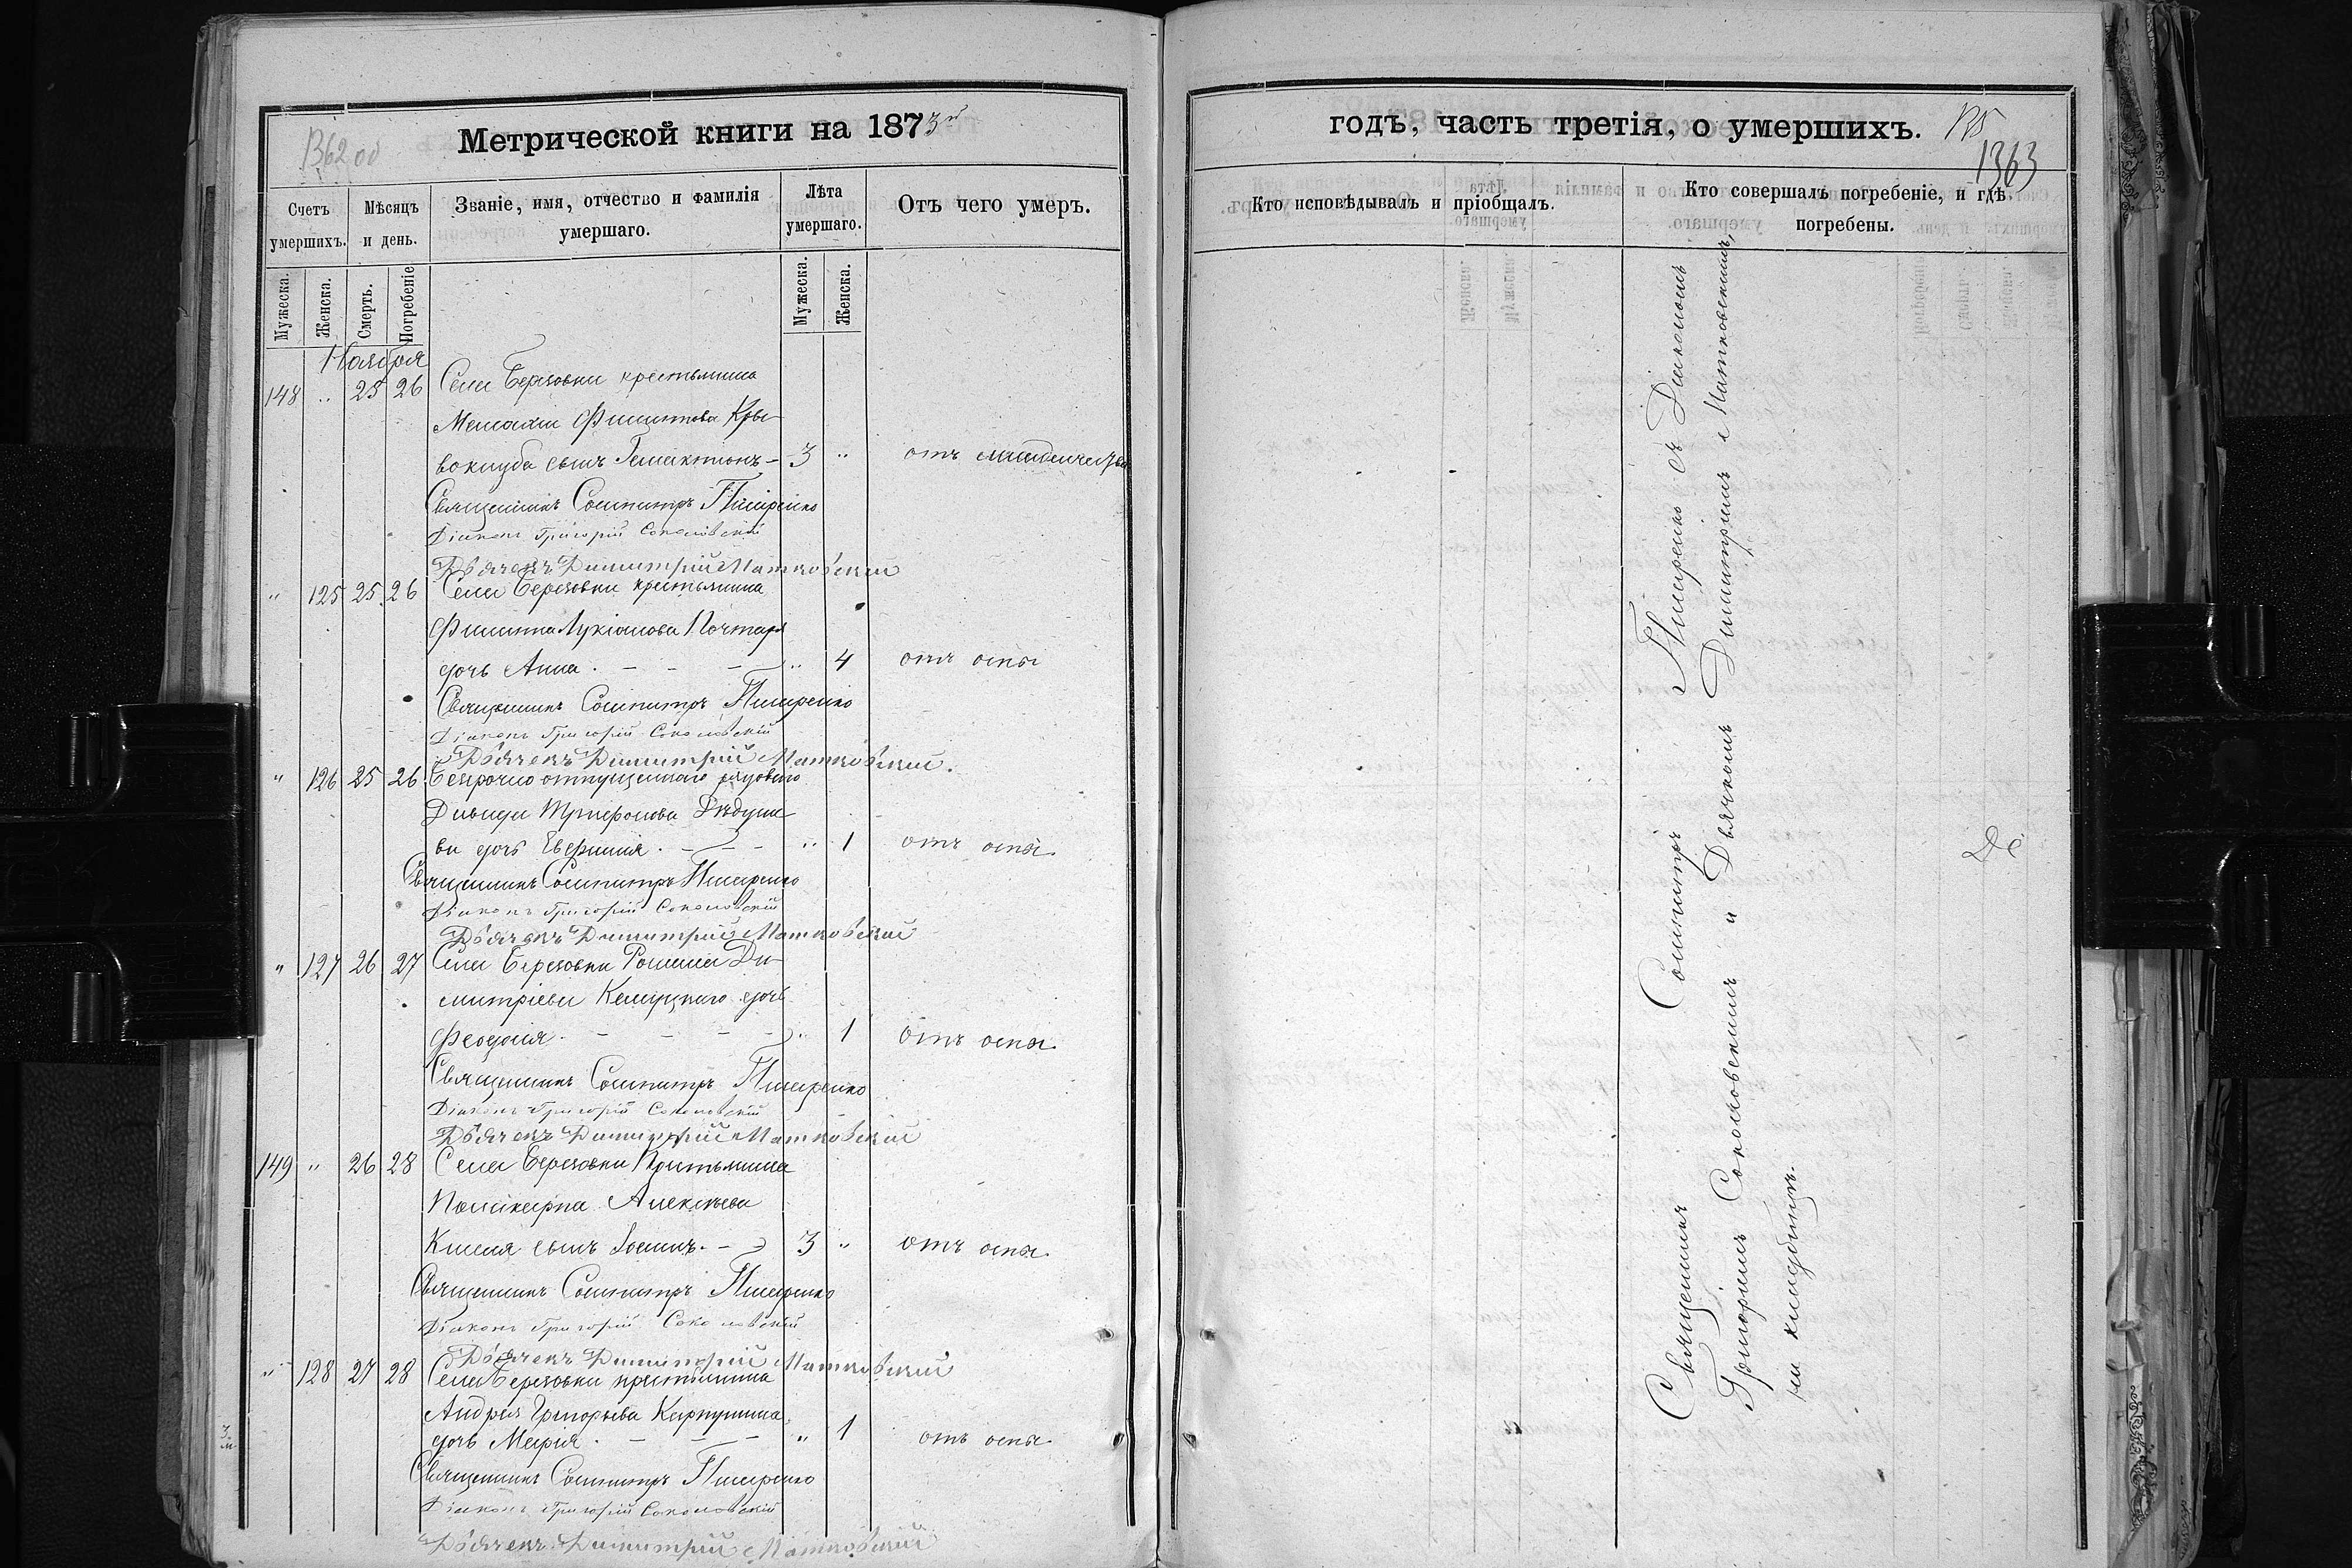 Метрической книги на 1873й
1362 об
Счетъ умершихъ.
Мѣсяцъ и день.
Званіе, имя, отчество и фамилія умершаго.
Лѣта умершаго.
Отъ чего умеръ.
Мужеска.
Женска.
Смерть.
Погребеніе
Мужеска.
Женска.
Ноября
148 " 25 26 Села Березовки крестьянина
Филиппова Кры-
воклуба сынъ Галактіонъ - 3 " отъ младенчества
Священникъ Сосипатръ Писаренко
Діаконъ Григорій Соколовскій
Дьячекъ Димитрій Матковскій
" 125 25 26 Села Березовки крестьянина
Филиппа Лукіанова Почтаря
дочь Анна. - - - " 4 отъ оспы
Священникъ Сосипатръ Писаренко
Діаконъ Григорій Соколовскій
Дьячекъ Димитрій Матковскій.
" 126 25 26 Безсрочно отпущеннаго рядового
Давида Трифонова
ва дочь Евфимія. - - - " 1 отъ оспы.
Священникъ Сосипатръ Писаренко
Діаконъ Григорій Соколовскій
Дьячекъ Димитрій Матковскій
" 127 26 27 Села Березовки Романа Ди-
митріева дочь
Феодосія. - - - - " 1 отъ оспы.
Священникъ Сосипатръ Писаренко
Діаконъ Григорій Соколовскій
Дьячекъ Димитрій Матковскій
149 " 26 28 Села Березовки Крестьянина
Поликарпа Алексѣева
Киселя сынъ Іоаннъ. - - 3 " отъ оспы.
Священникъ Сосипатръ Писаренко
Діаконъ Григорій Соколовскій
Дьячекъ Димитрій Матковскій
" 128 27 28 Села Березовки крестьянина
Андрея Григорьева Карпушина
дочь Марія. - - - " 1 отъ оспы.
Священникъ Сосипатръ Писаренко
Діаконъ Григорій Соколовскій
Дьячекъ Димитрій Матковскій
годъ, часть третія, о умершихъ.
1363
Кто исповѣдывалъ и пріобщалъ.
Кто совершалъ погребеніе, и гдѣ погребены.
Священникъ Сосипатръ Писаренко съ Діакономъ
Григоріемъ Соколовскимъ и Дьячкомъ Димитріемъ Матковскимъ,
на кладбищѣ.